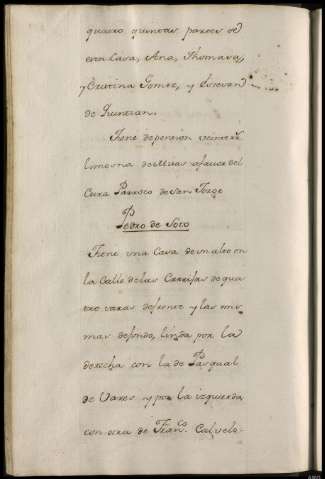 quatro quintas partes de
esta Casa, Ana, Thomasa,
y Cristina Gomez, y Estevan
de Quintian.
Tiene de pension veinte rˢ
limosna de Misas a favor del
Cura Parroco de San Jorge
Pedro de Soto
Tiene una Casa de un alto en
la Calle de las Carrisas de qua
tro varas de frente y las mis
mas de fondo, linda por la
derecha con la de Pasqual
de Vares y por la izquierda
con otra de Franᶜᵒ Calvelo.